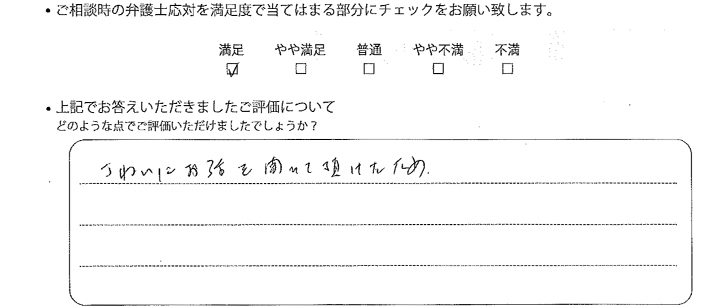 • ご相談時の弁護士応対を満足度で当てはまる部分にチェックをお願い致します。
満足 やや満足 普通 やや不満 不満
☑ □ □ □ □
• 上記でお答えいただきましたご評価について
どのような点でご評価いただけましたでしょうか？
ていねいにお話を聞いて頂けたため.